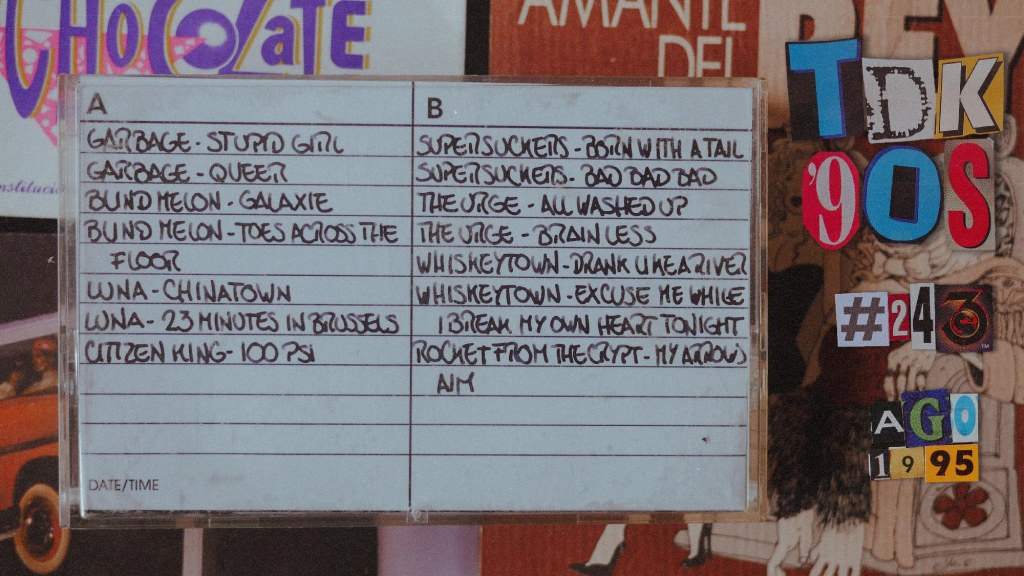 CHOCOLATE
AMANTE
DEL
REY
nstituci
A
GARBAGE - STUPID GIRL
GARBAGE - QUEER
BLIND MELON - GALAXIE
BLIND MELON - TOES ACROSS THE
FLOOR
LUNA - CHINATOWN
LUNA - 23 MINUTES IN BRUSSELS
CITIZEN KING - 100 PSI
DATE/TIME
B
SUPERSUCKERS - BORN WITH A TAIL
SUPERSUCKERS - BAD BAD BAD
THE URGE - ALL WASHED UP
THE URGE - BRAIN LESS
WHISKEYTOWN - DRANK LIKE A RIVER
WHISKEYTOWN - EXCUSE ME WHILE
I BREAK MY OWN HEART TONIGHT
ROCKET FROM THE CRYPT - MY ARROWS
AIM
TDK
'90S
#243
AGO
1995